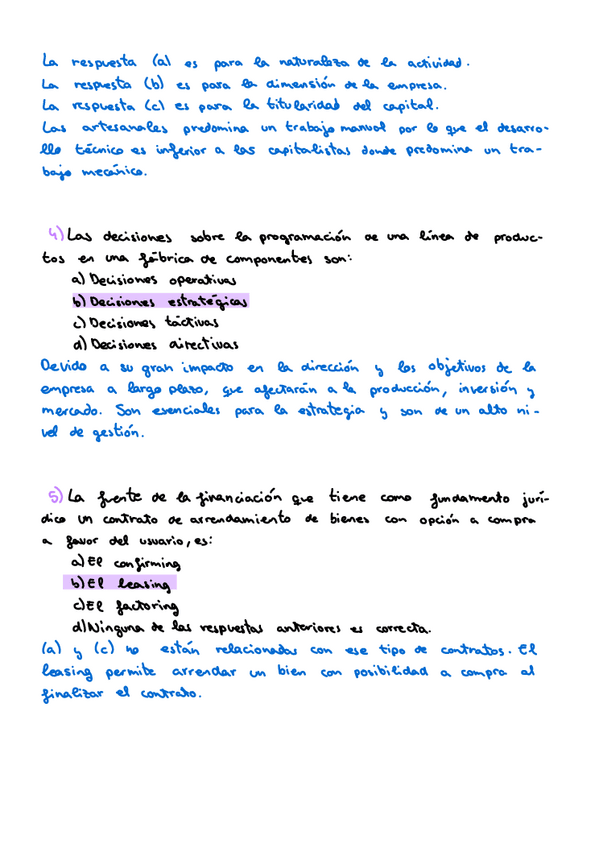 La respuesta (a) es para la naturaleza de la actividad.
La respuesta (b) es para la dimensión de la empresa.
La respuesta (c) es para la titularidad del capital.
Las artesanales predomina un trabajo manual por lo que el desarro-
llo técnico es inferior a las capitalistas donde predomina un tra-
bajo mecánico.
4) Las decisiones sobre la programación de una línea de produc-
tos en una fábrica de componentes son:
a) Decisiones operativas
b) Decisiones estratégicas
c) Decisiones tácticas
d) Decisiones directivas
Devido a su gran impacto en la dirección y los objetivos de la
empresa a largo plazo, que afectarán a la producción, inversión y
mercado. Son esenciales para la estrategia y son de un alto ni-
vel de gestión.
5) La fuente de la financiación que tiene como fundamento jurí-
dico un contrato de arrendamiento de bienes con opción a compra
a favor del usuario, es:
a) El confirming
b) El leasing
c) El factoring
d) Ninguna de las respuestas anteriores es correcta.
(a) y (c) no están relacionadas con ese tipo de contratos. El
leasing permite arrendar un bien con posibilidad a compra al
finalizar el contrato.